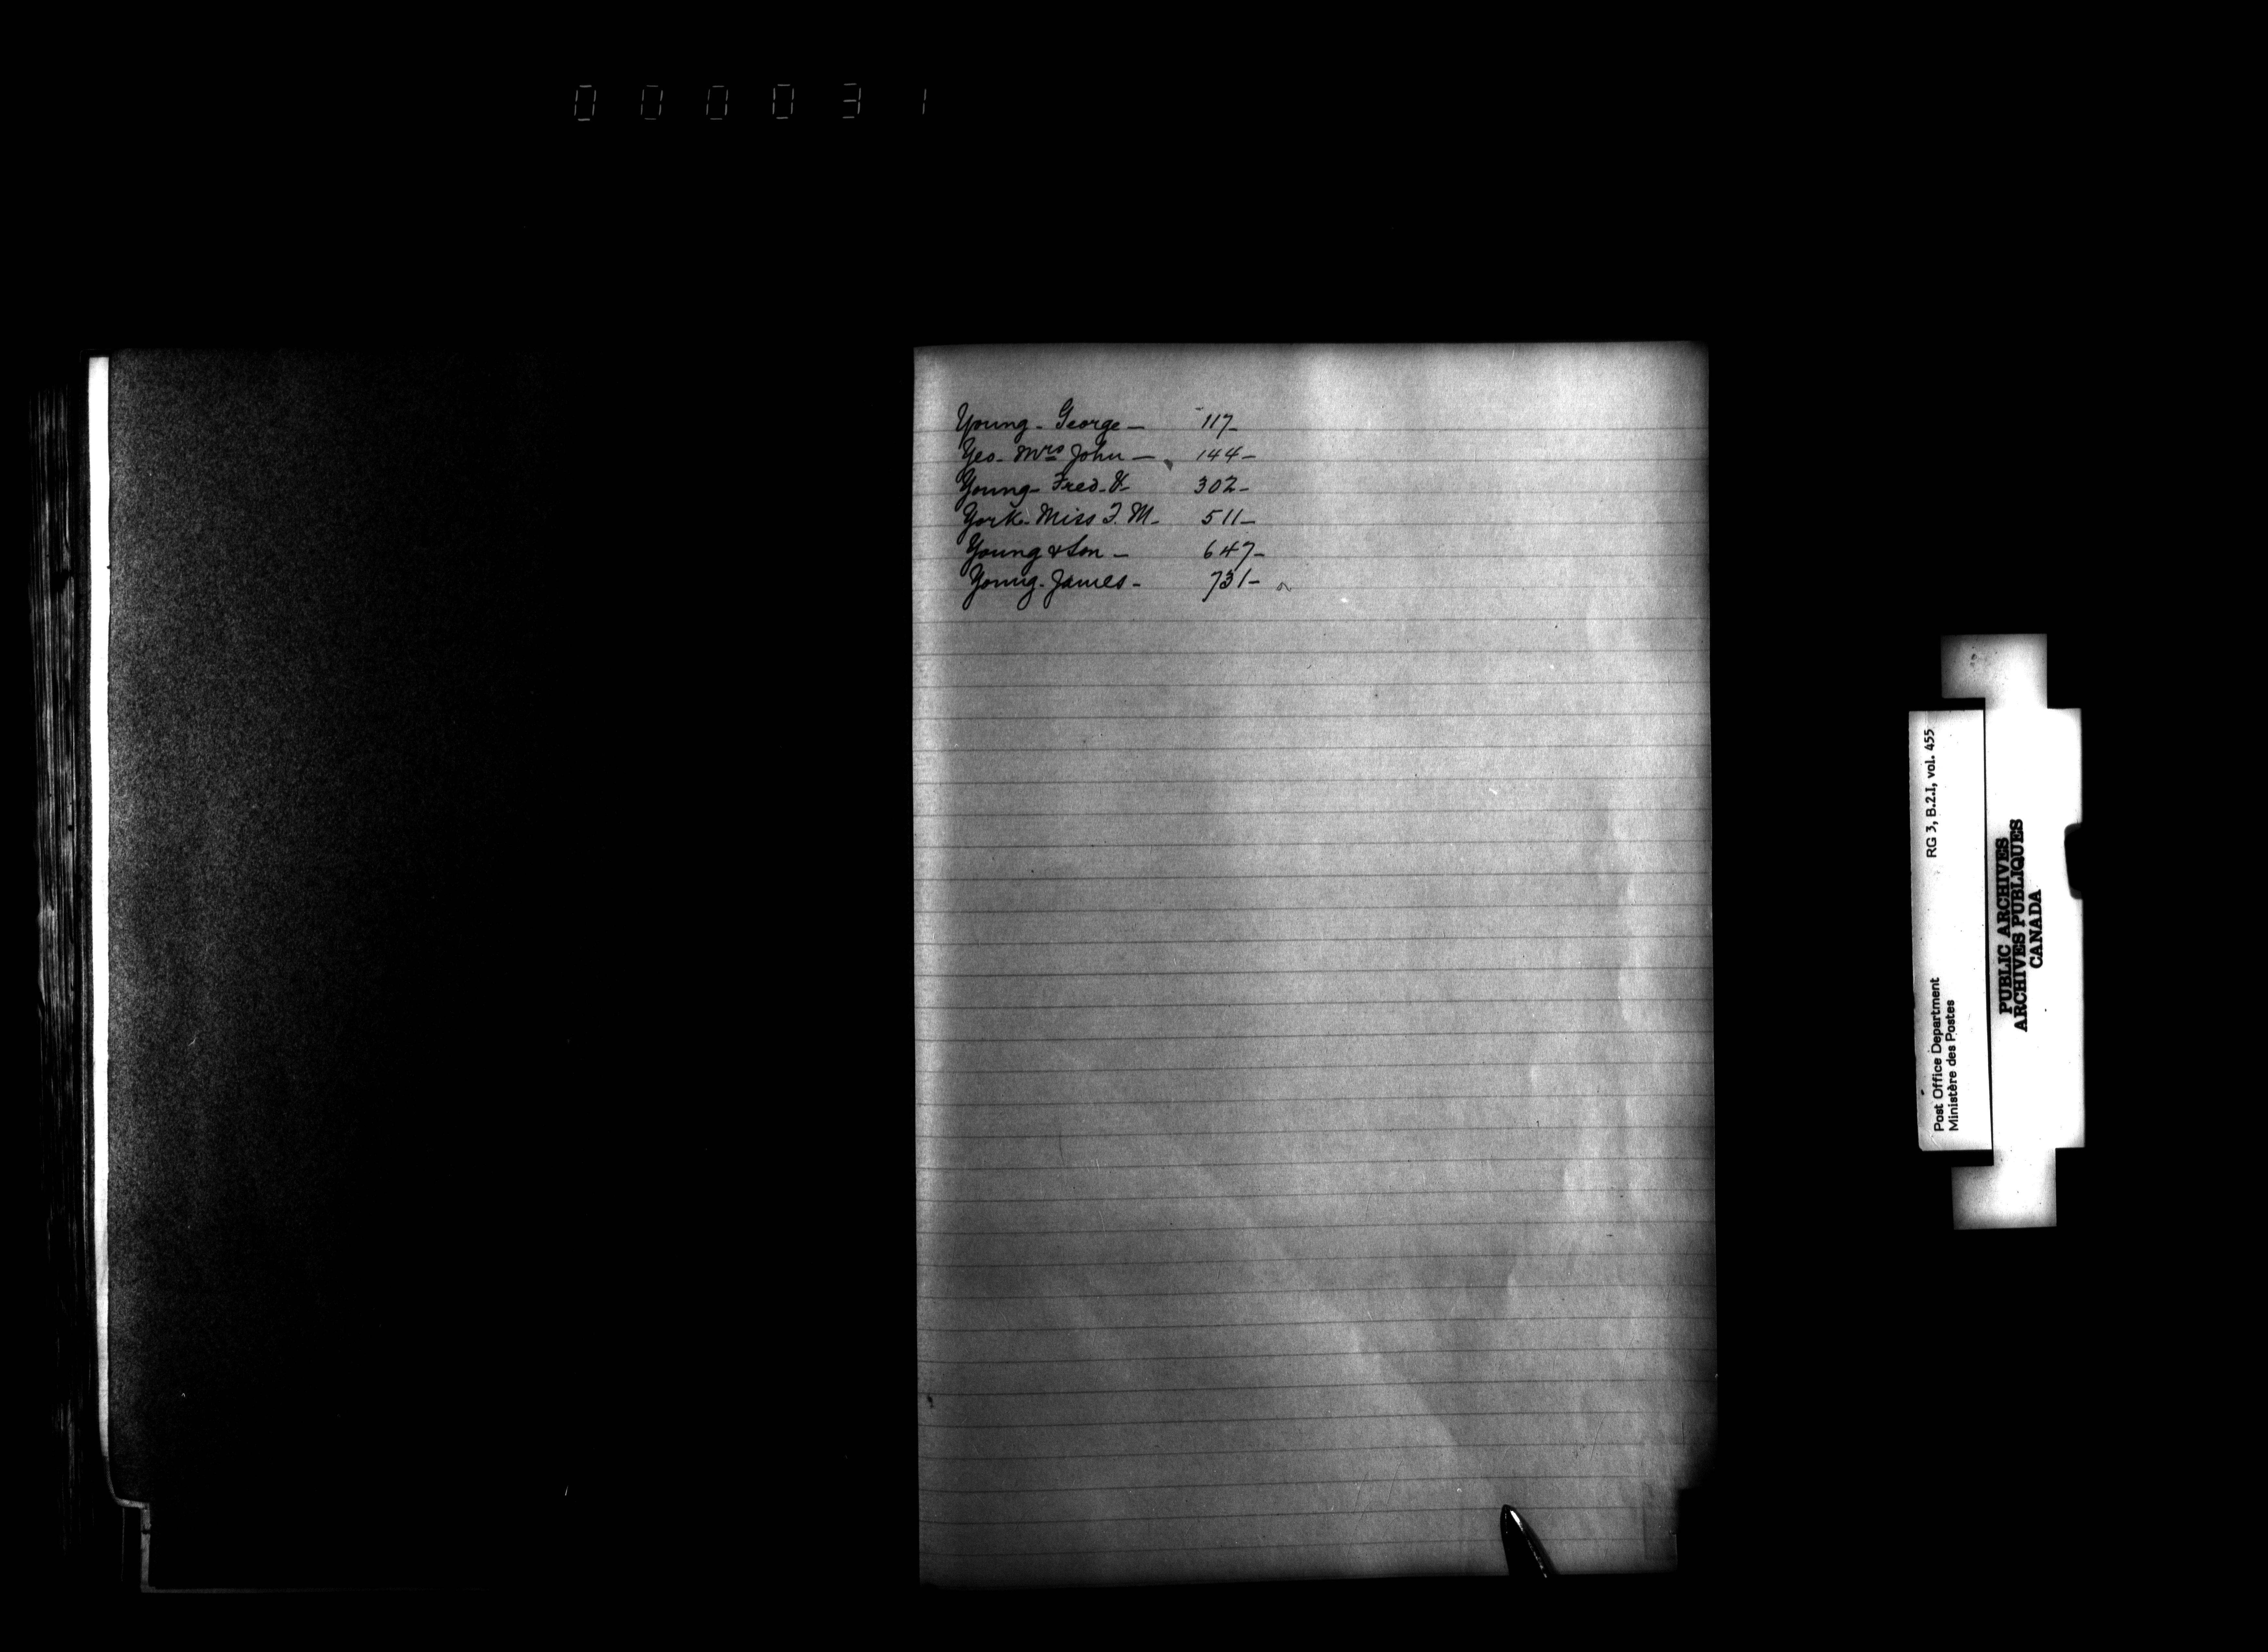 000031
Young - George — 117-
Yeo - Mrs John — 144-
Young - Fred. 302-
York - Miss F. M. 511-
Young & Son - 647-
Young - James - 731-
RG 3, B.2.1, vol. 455
Post Office Department
Ministère des Postes
PUBLIC ARCHIVES
ARCHIVES PUBLIQUES
CANADA